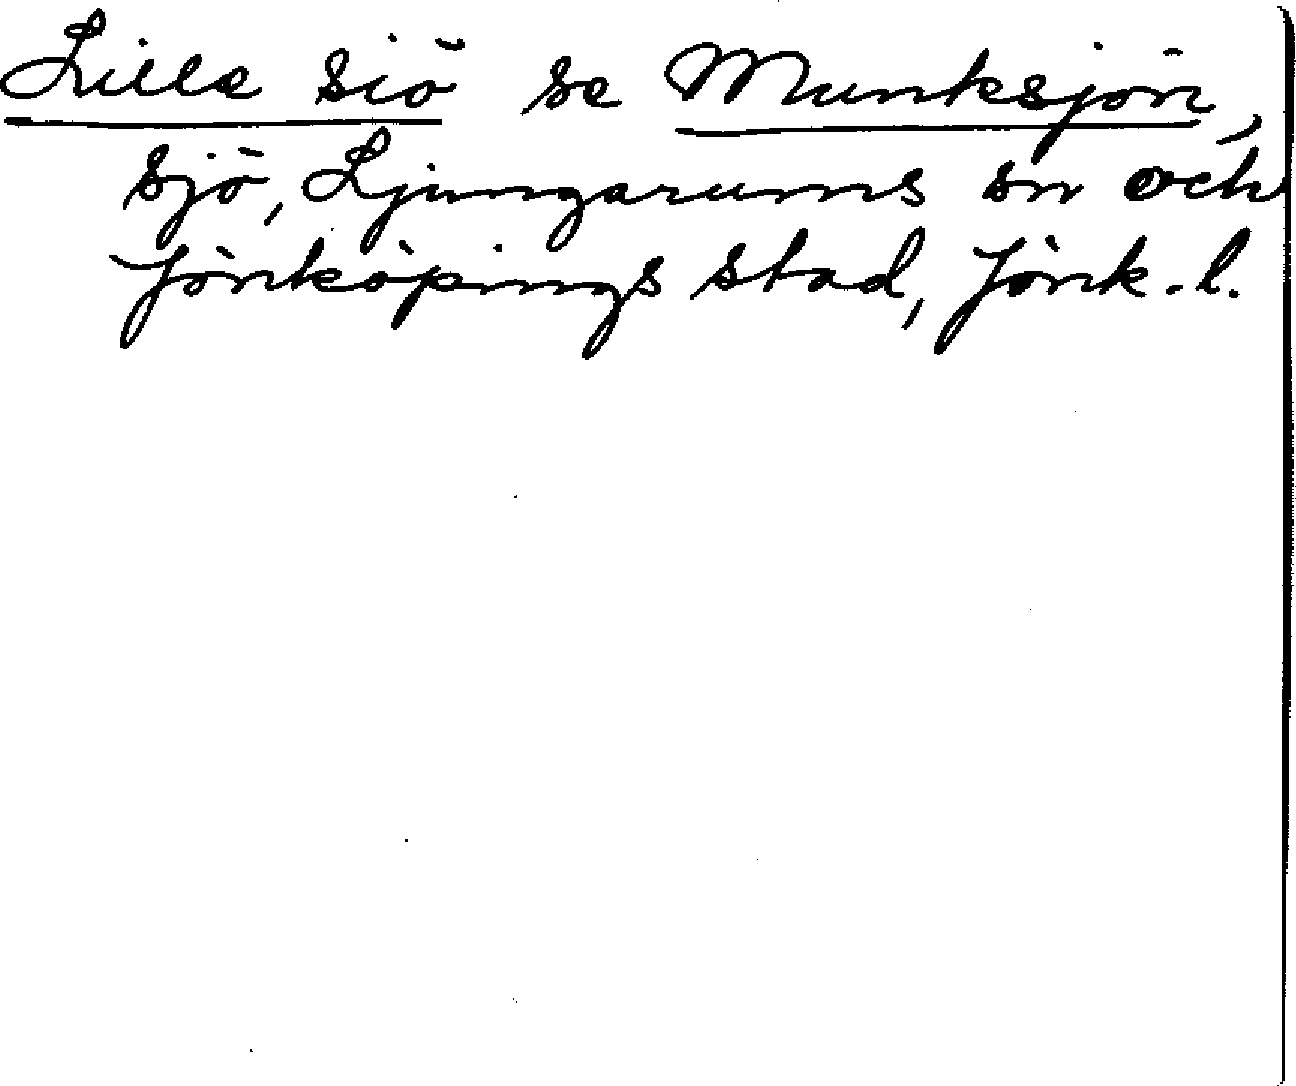 Lilla siö se Munksjön,
sjö, Ljungarums sn och
Jönköpings stad, Jönk. l.